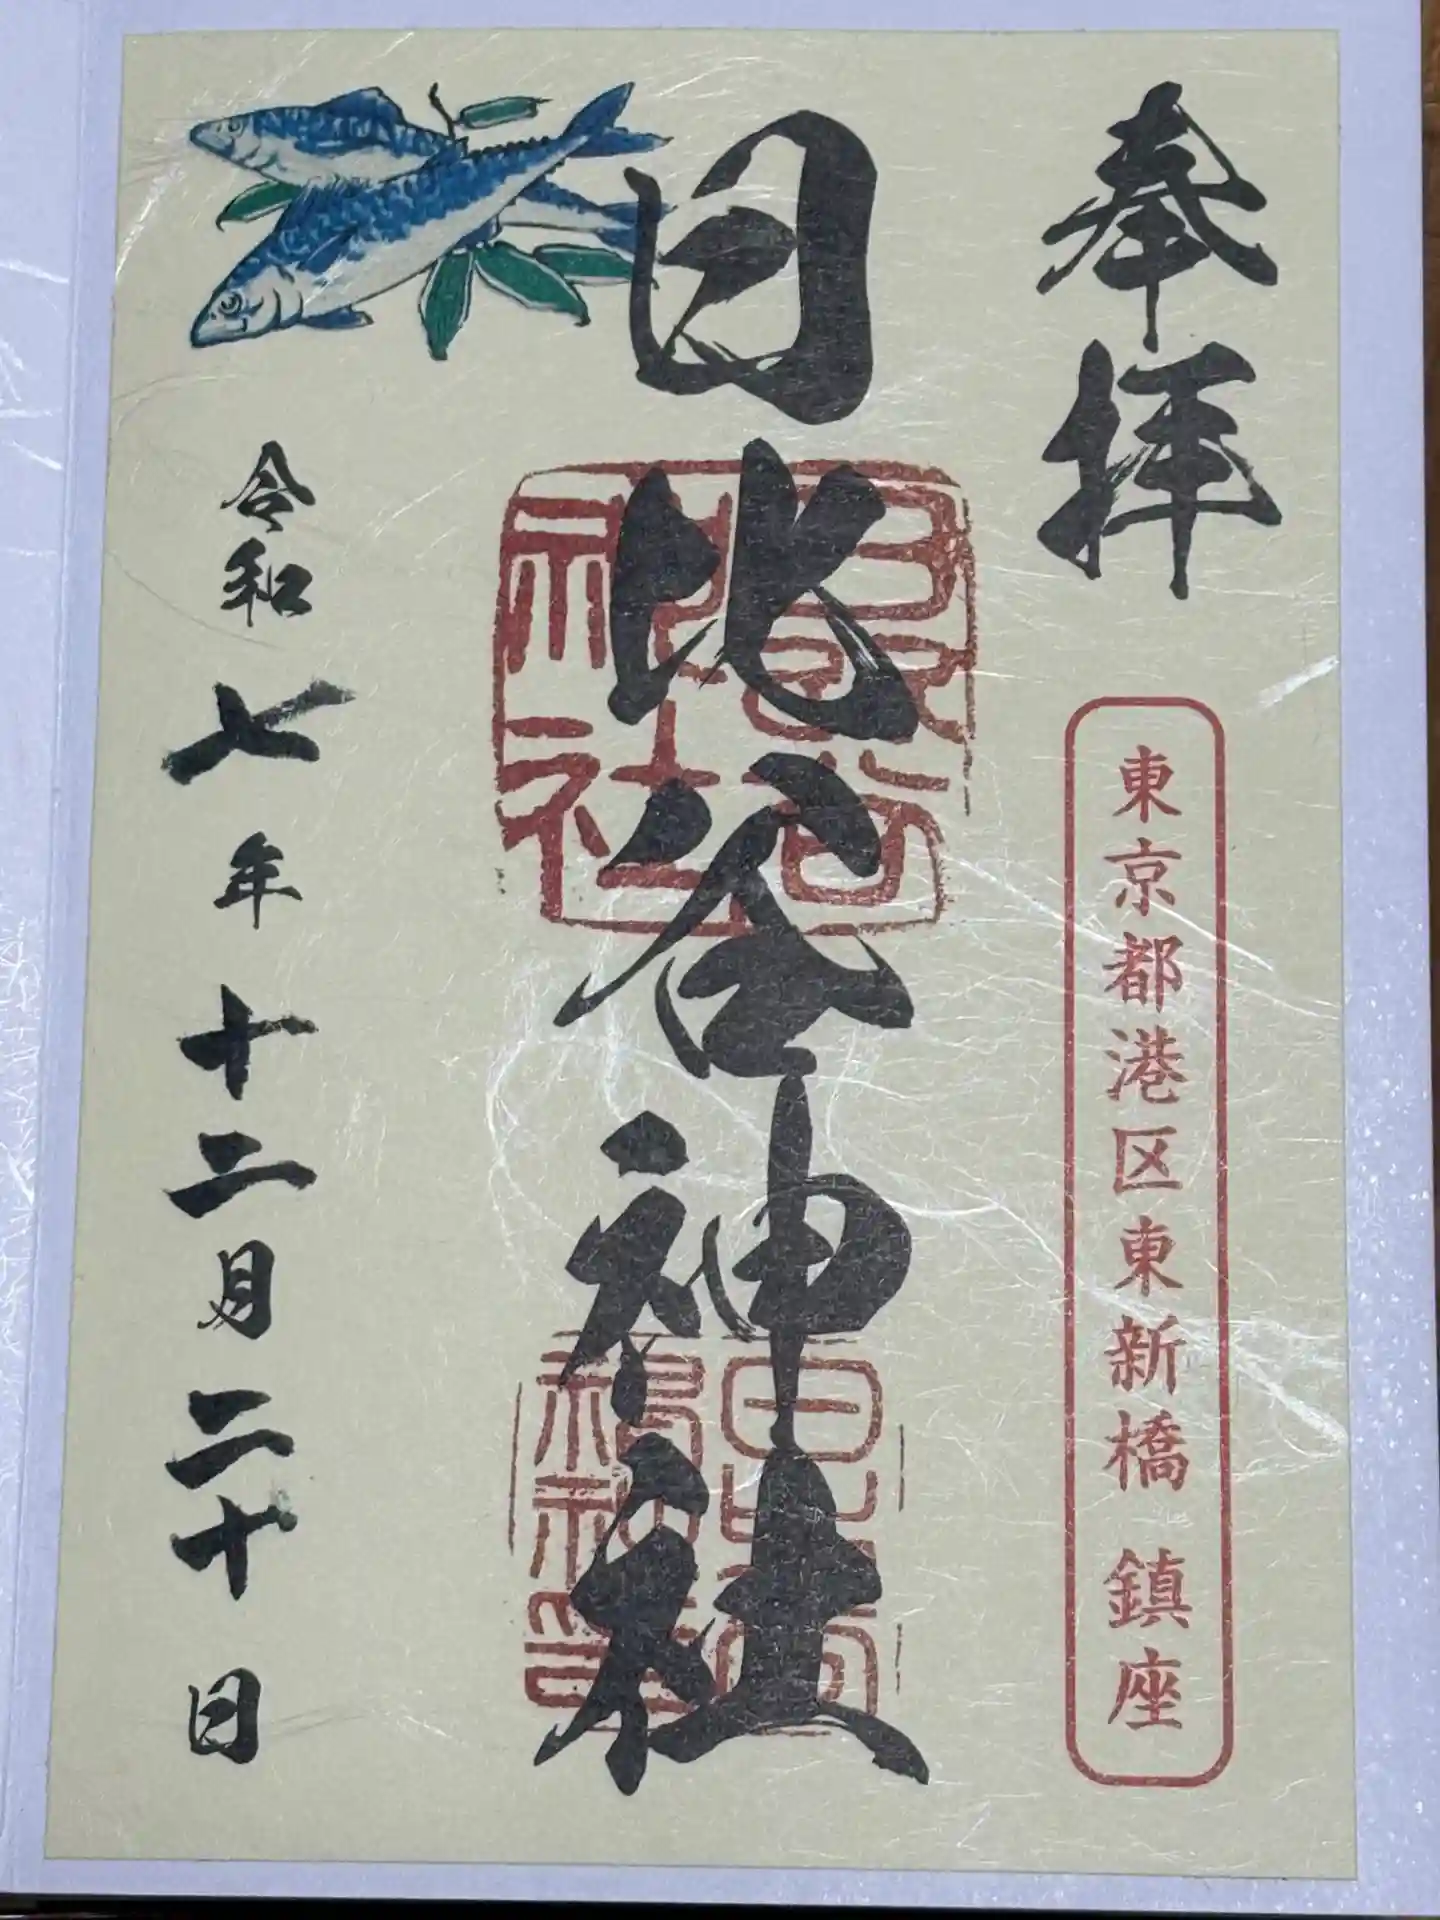 奉拝
東京都港区東新橋 鎮座
日比谷神社
令和七年十二月二十日